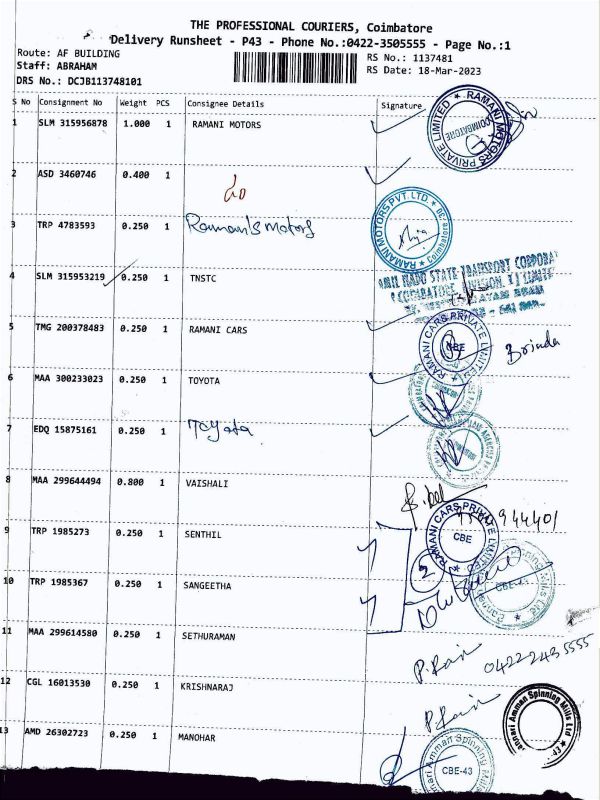 THE PROFESSIONAL COURIERS, Coimbatore
Delivery Runsheet - P43 - Phone No.:0422-3505555 - Page No.:1
Route: AF BUILDING
Staff: ABRAHAM
DRS No.: DCJB113748101
RS No.: 1137481
RS Date: 18-Mar-2023
S No Consignment No Weight PCS Consignee Details Signature
1 SLM 315956878 1.000 1 RAMANI MOTORS
RAMANI MOTORS PRIVATE LIMITED
COIMBATORE
2 ASD 3460746 0.400 1
3 TRP 4783593 0.250 1 Ramani's motors
RAMANI MOTORS PVT. LTD.
Coimbatore
4 SLM 315953219 0.250 1 TNSTC
STATE TRANSPORT
5 TMG 200378483 0.250 1 RAMANI CARS
RAMANI CARS PRIVATE LIMITED
CBE
Brinda
6 MAA 300233023 0.250 1 TOYOTA
7 EDQ 15875161 0.250 1 Toyota
8 MAA 299644494 0.800 1 VAISHALI
944401
9 TRP 1985273 0.250 1 SENTHIL
RAMANI CARS PRIVATE LIMITED
CBE
10 TRP 1985367 0.250 1 SANGEETHA
2
11 MAA 299614580 0.250 1 SETHURAMAN
04222435555
12 CGL 16013530 0.250 1 KRISHNARAJ
Amman Spinning Mills Ltd
13 AMD 26302723 0.250 1 MANOHAR
Amman Spinning
CBE-43